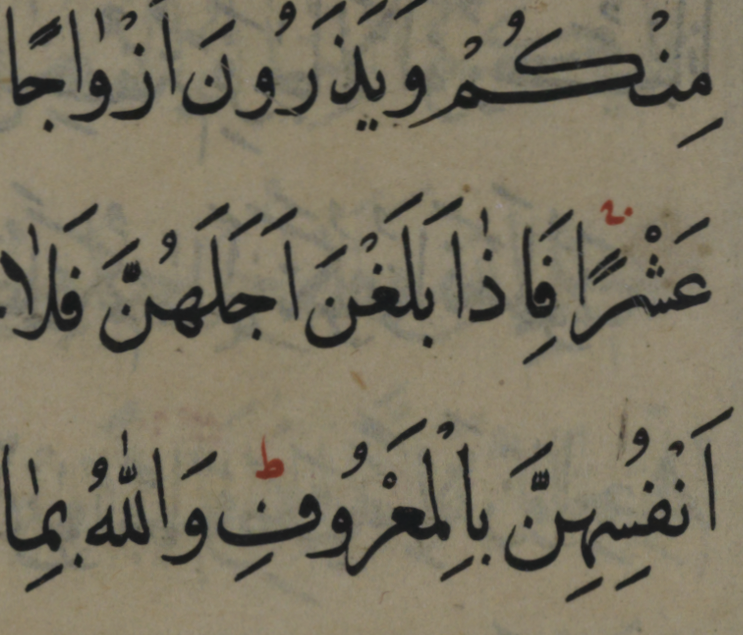 مِنْكُمْ وَيَذَرُونَ اَزْوٰاجًا
عَشْرًا فَاِذٰا بَلَغْنَ اَجَلَهُنَّ فَلٰا
اَنْفُسِهِنَّ بِالْمَعْرُوفِ ط وَاللّٰهُ بِمٰا